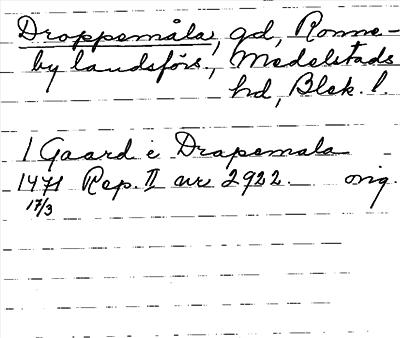 Droppemåla, gd, Ronne-
by landsförs., Medelstads
hd, Blek. l.
1 Gaard i Drapemala
1471 Rep. II nr 2922. orig.
17/3